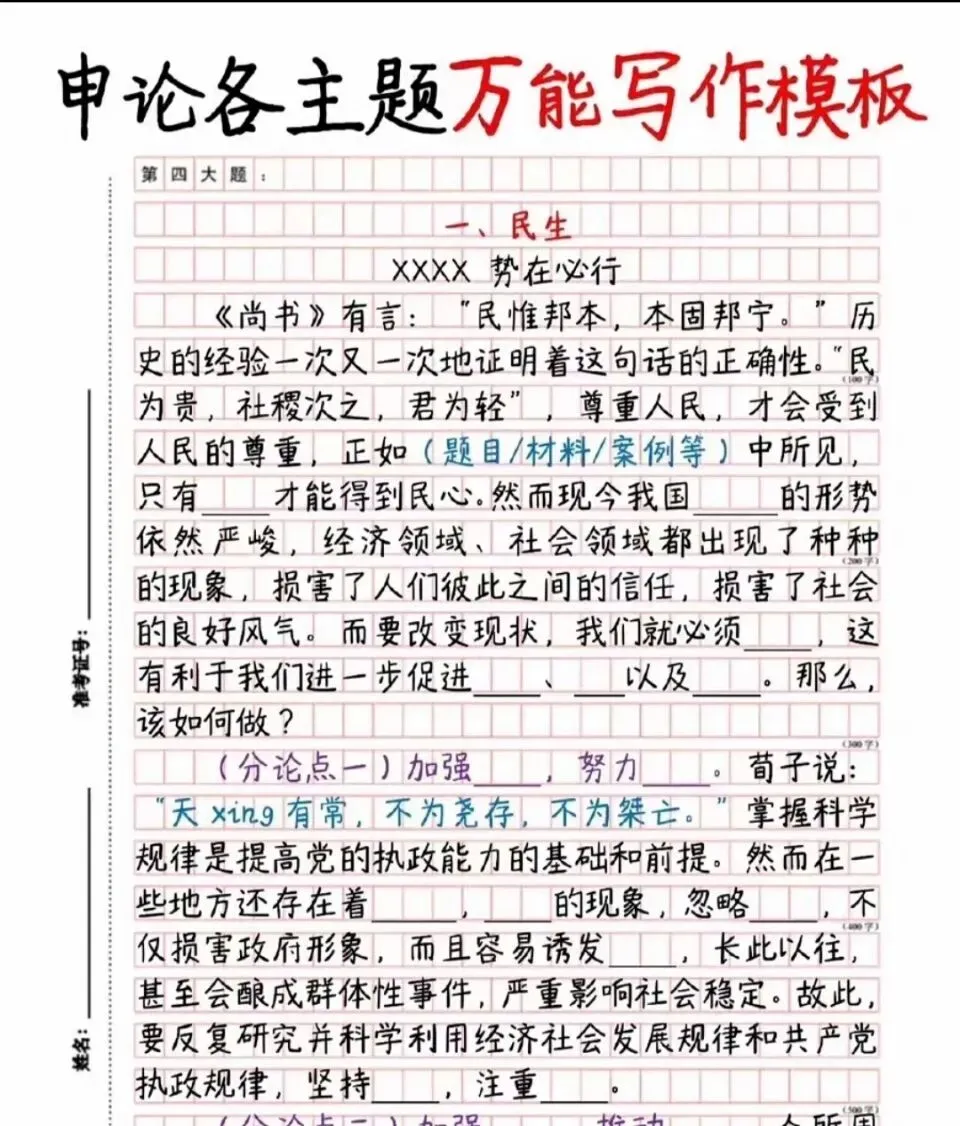 申论各主题万能写作模板
第四大题：
一、民生
XXXX 势在必行
《尚书》有言：“民惟邦本，本固邦宁。”历
史的经验一次又一次地证明着这句话的正确性。“民
(100字)
为贵，社稷次之，君为轻”，尊重人民，才会受到
人民的尊重，正如（题目/材料/案例等）中所见，
只有____才能得到民心。然而现今我国____的形势
依然严峻，经济领域、社会领域都出现了种种
(200字)
的现象，损害了人们彼此之间的信任，损害了社会
的良好风气。而要改变现状，我们就必须____，这
有利于我们进一步促进____、___以及____。那么，
该如何做？
(300字)
（分论点一）加强____，努力____。荀子说：
“天xing有常，不为尧存，不为桀亡。”掌握科学
规律是提高党的执政能力的基础和前提。然而在一
些地方还存在着_____，____的现象，忽略____，不
(400字)
仅损害政府形象，而且容易诱发____，长此以往，
甚至会酿成群体性事件，严重影响社会稳定。故此，
要反复研究并科学利用经济社会发展规律和共产党
执政规律，坚持____，注重____。
(500字)
（分论点二）加强____，推动____。
准考证号：
姓名：